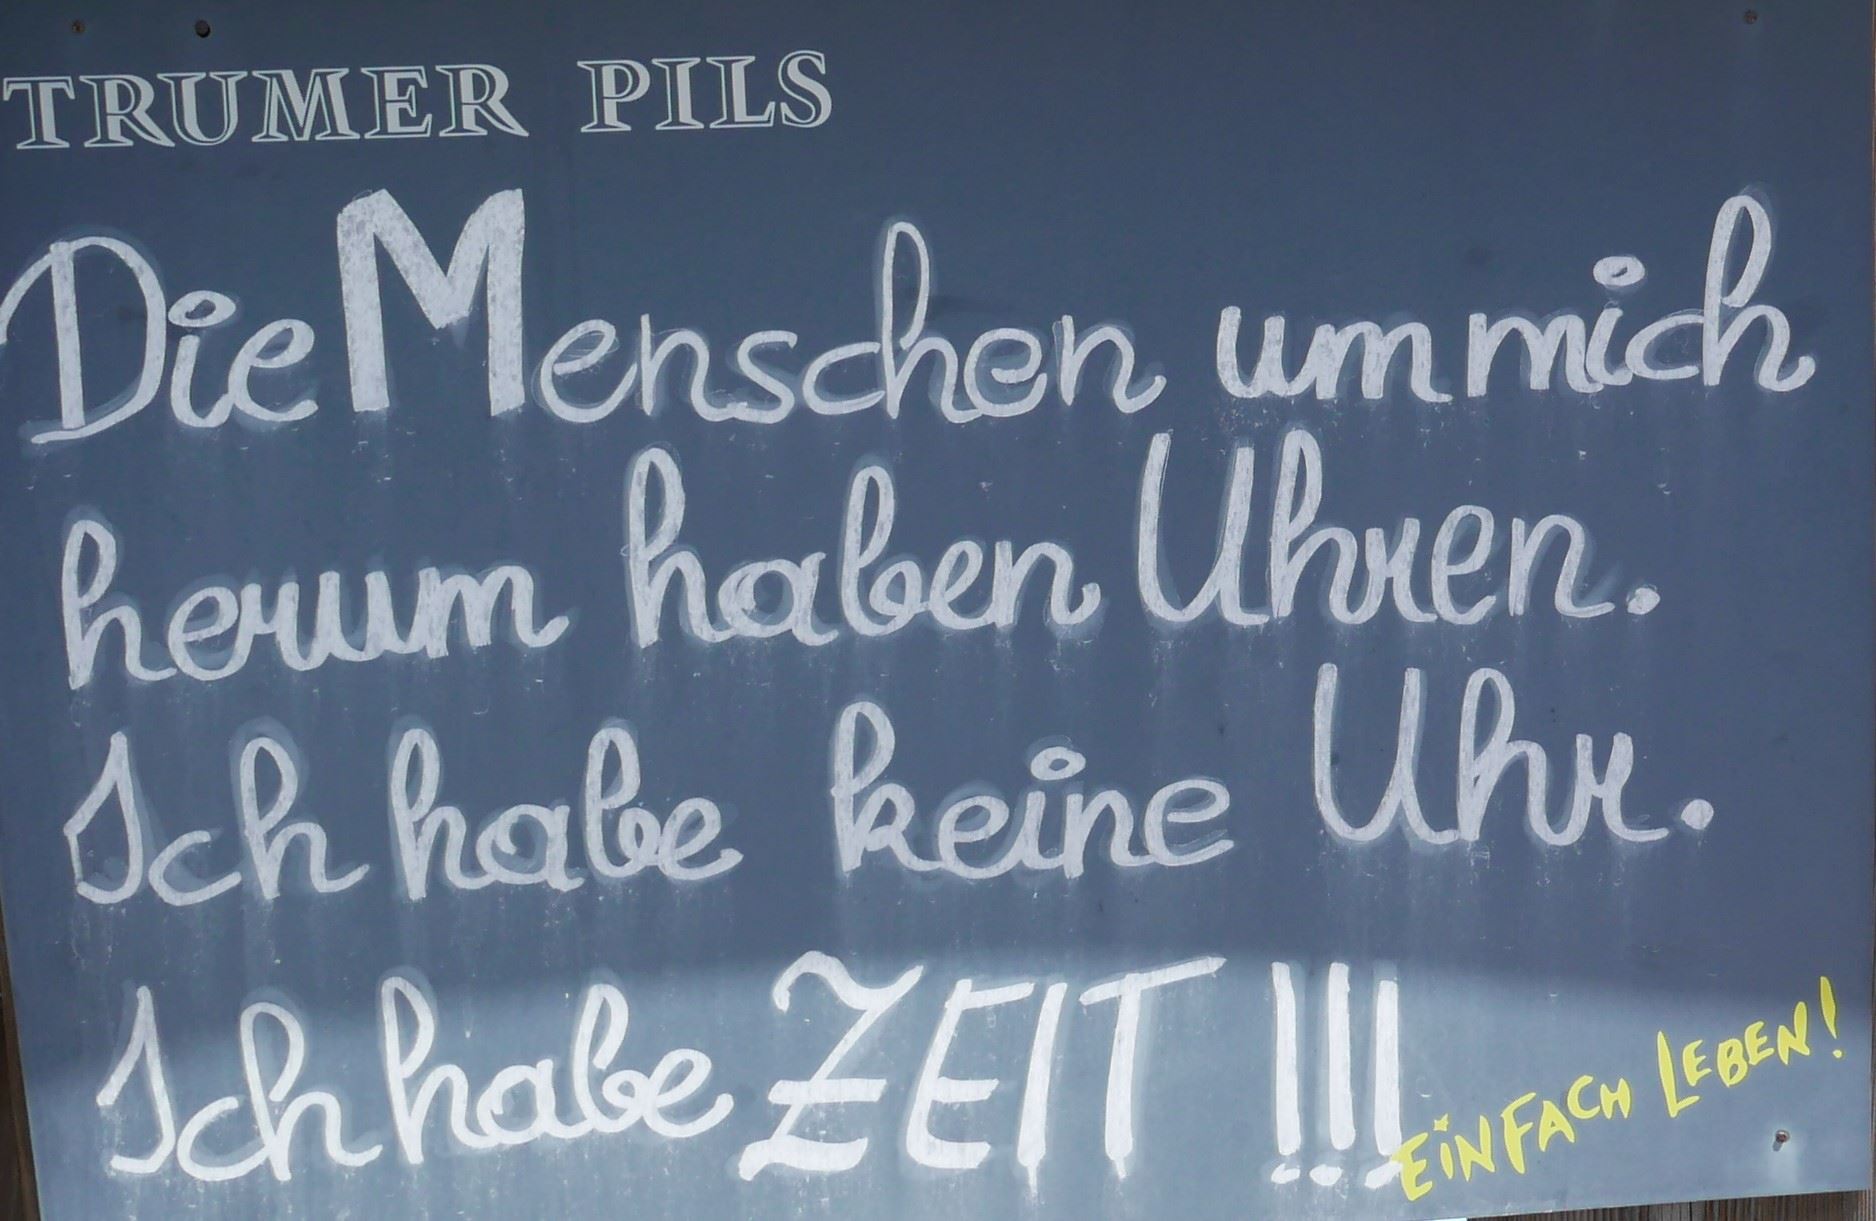 TRUMER PILS
Die Menschen um mich
herum haben Uhren.
Ich habe keine Uhr.
Ich habe ZEIT !!!
EiNFACH LEBEN!